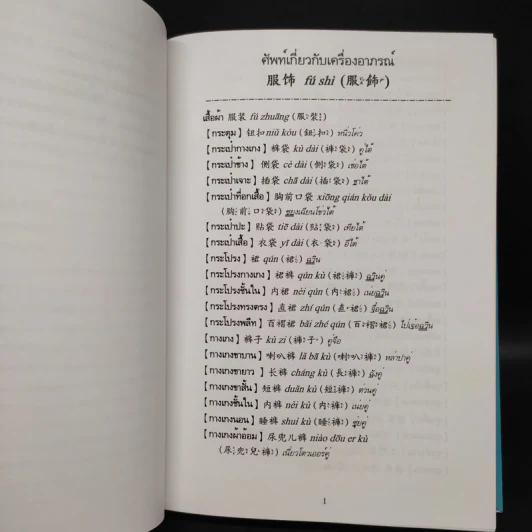 ศัพท์เกี่ยวกับเครื่องอาภรณ์
服饰 fú shì (服飾)
เสื้อผ้า 服装 fú zhuāng (服裝)
【กระดุม】 钮扣 niǔ kòu (鈕扣) หนิ่วโค่ว
【กระเป๋ากางเกง】 裤袋 kù dài (褲袋) คู่ไต้
【กระเป๋าข้าง】 侧袋 cè dài (側袋) เช่อไต้
【กระเป๋าเจาะ】 插袋 chā dài (插袋) ชาไต้
【กระเป๋าที่อกเสื้อ】 胸前口袋 xiōng qián kǒu dài
(胸前口袋) ซยงเฉียนโข่วไต้
【กระเป๋าปะ】 贴袋 tiē dài (貼袋) เทียไต้
【กระเป๋าเสื้อ】 衣袋 yī dài (衣袋) อีไต้
【กระโปรง】 裙 qún (裙) ฉวิน
【กระโปรงกางเกง】 裙裤 qún kù (裙褲) ฉวินคู่
【กระโปรงชั้นใน】 内裙 nèi qún (内裙) เน่ยฉวิน
【กระโปรงทรงตรง】 直裙 zhí qún (直裙) จื๋อฉวิน
【กระโปรงพลีท】 百褶裙 bǎi zhé qún (百褶裙) ไป่เจ๋อฉวิน
【กางเกง】 裤子 kù zi (褲子) คู่จึ
【กางเกงขาบาน】 喇叭裤 lǎ bā kù (喇叭褲) หล่าปาคู่
【กางเกงขายาว】 长裤 cháng kù (長褲) ฉังคู่
【กางเกงขาสั้น】 短裤 duǎn kù (短褲) ต่วนคู่
【กางเกงชั้นใน】 内裤 nèi kù (内褲) เน่ยคู่
【กางเกงนอน】 睡裤 shuì kù (睡褲) ซุ่ยคู่
【กางเกงผ้าอ้อม】 尿兜儿裤 niào dōu er kù
(尿兜兒褲) เนี่ยวโตวเออร์คู่
1